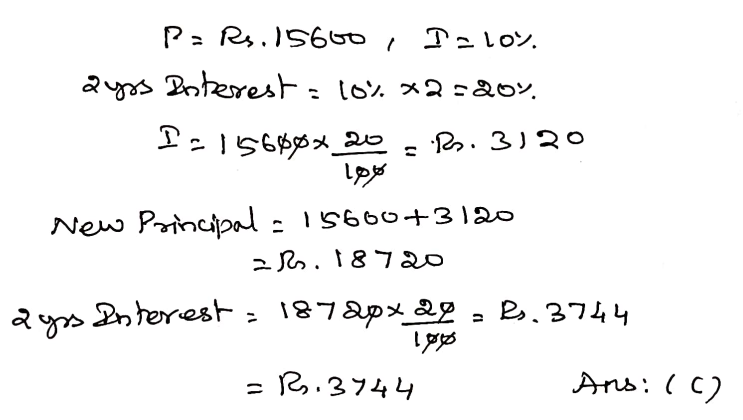 P = Rs. 15600 , I = 10%.
2 yrs Interest = 10% × 2 = 20%.
I = 15600 × 20/100 = Rs. 3120
New Principal = 15600 + 3120
= Rs. 18720
2 yrs Interest = 18720 × 20/100 = Rs. 3744
= Rs. 3744 Ans: (C)